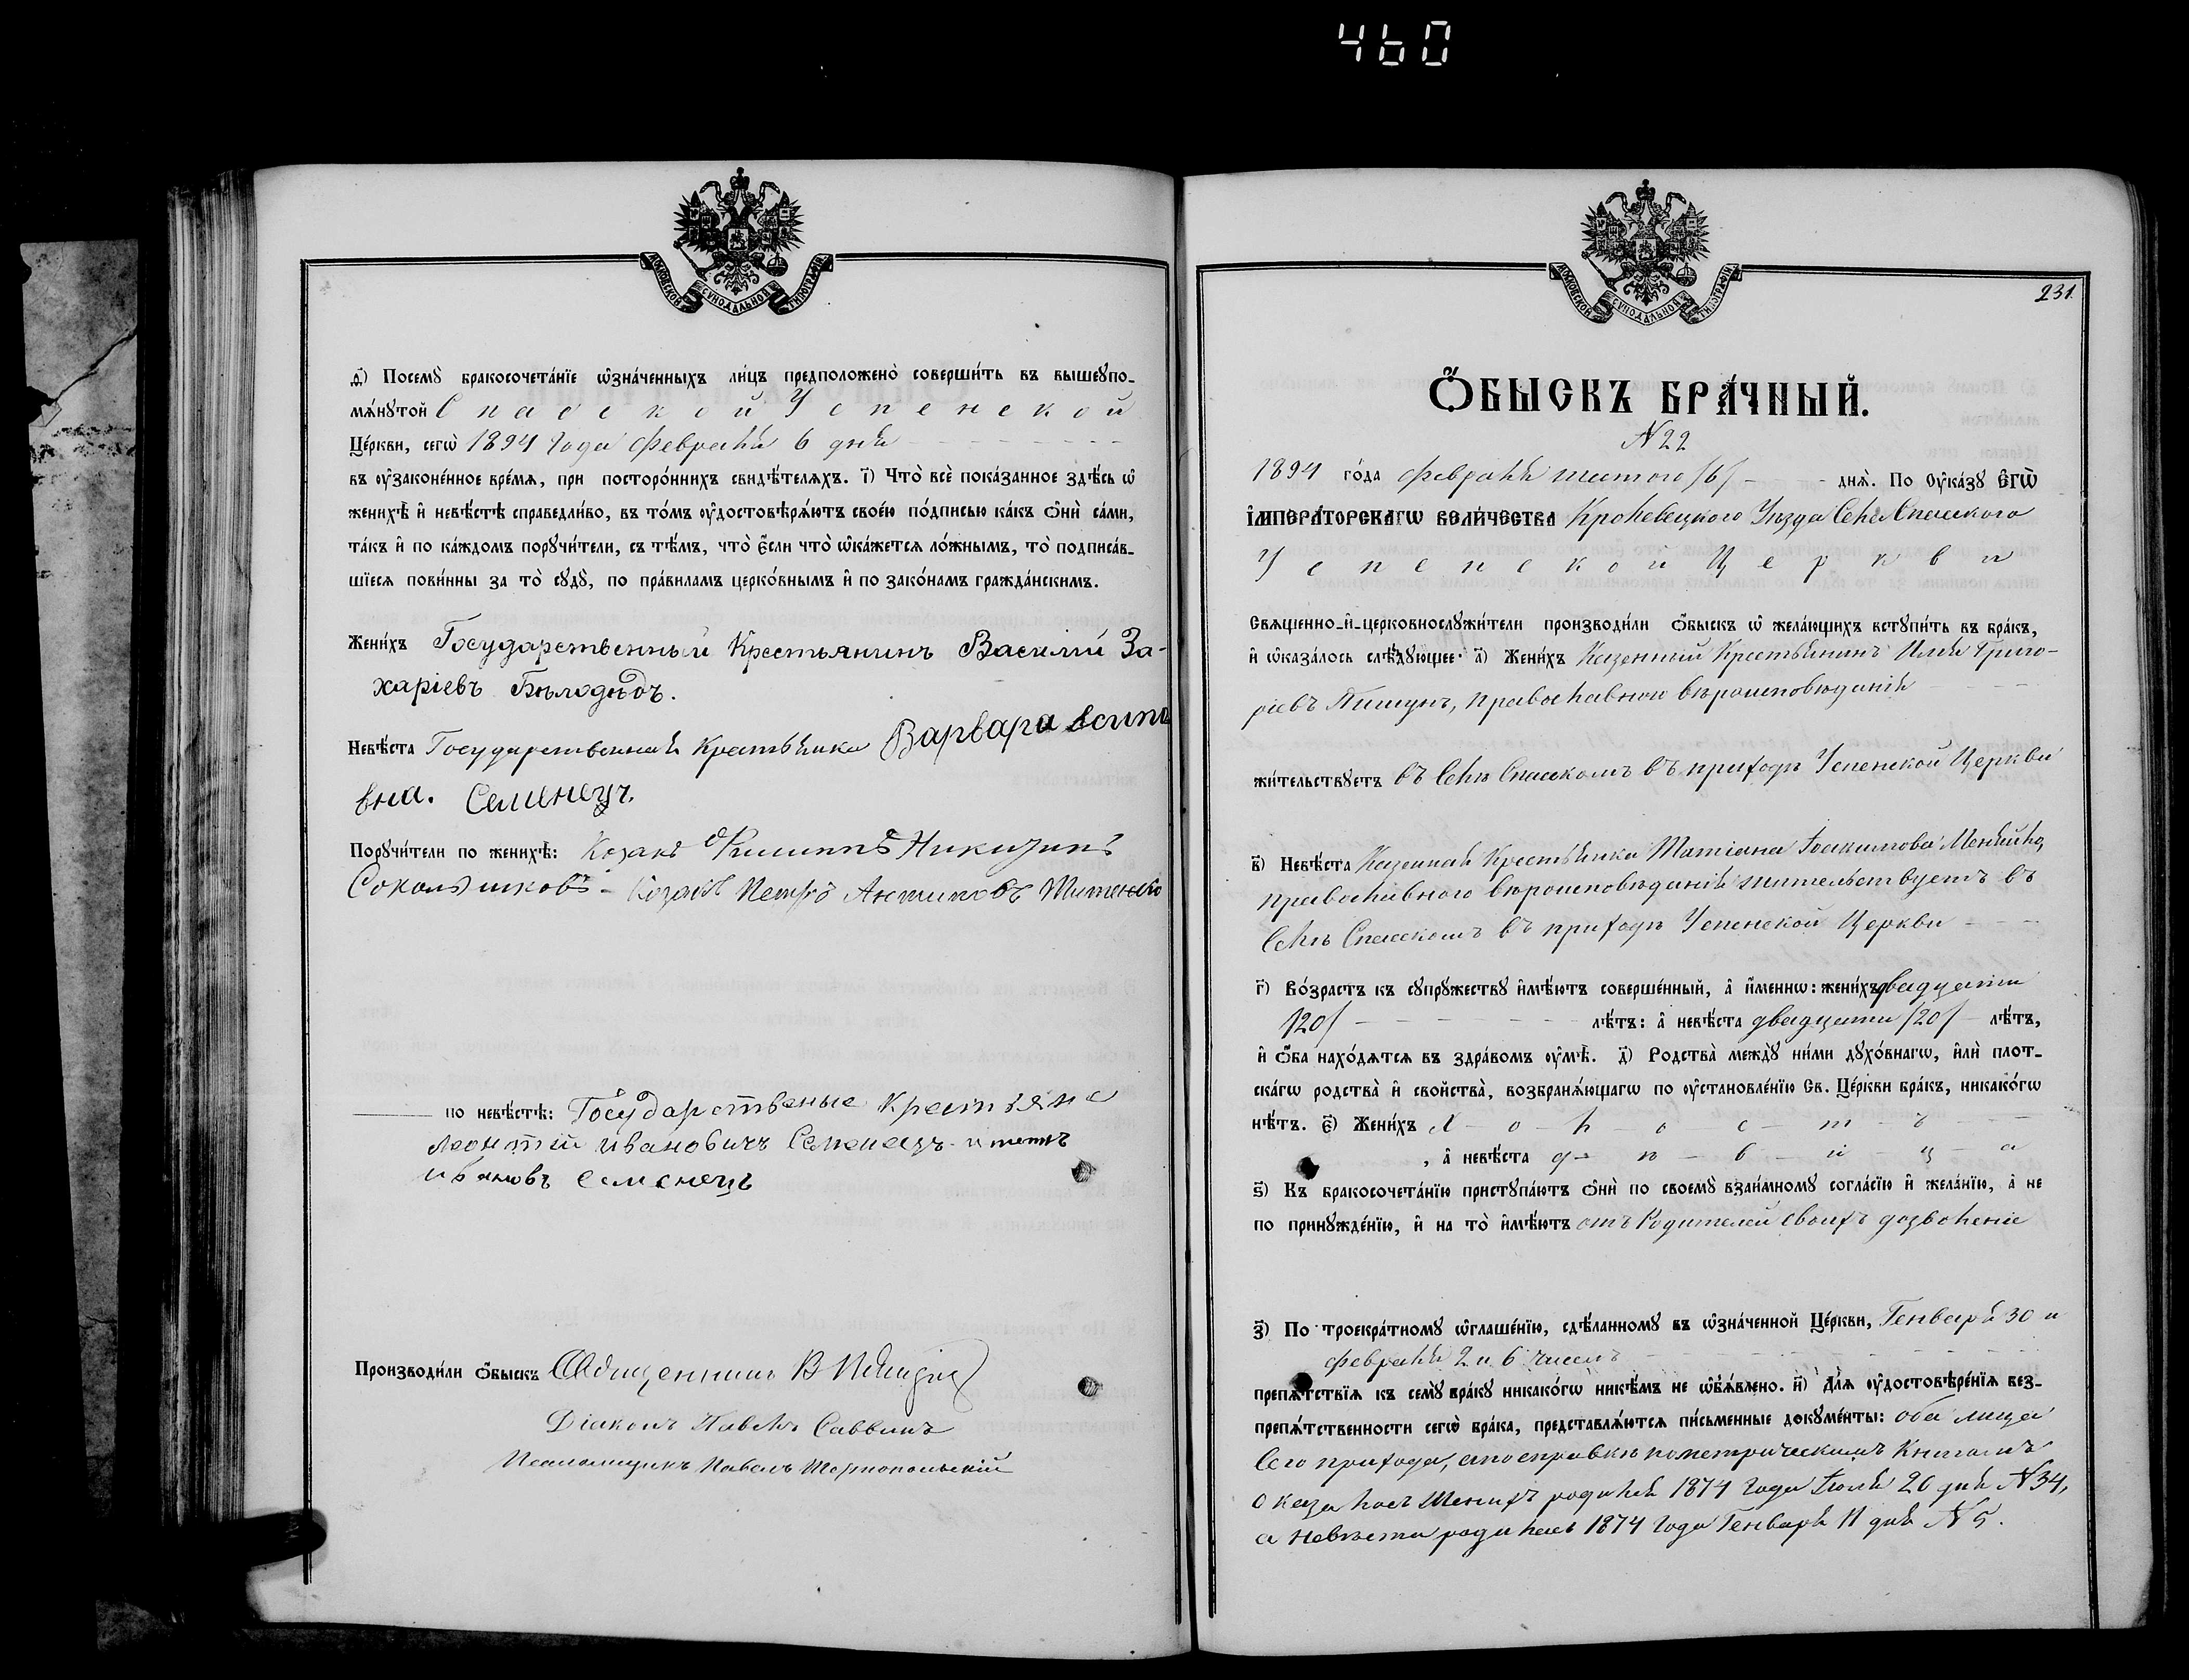 460
МОСКОВСКОЙ СѴНОДАЛЬНОЙ ТИПОГРАФІИ
д҃) Посемꙋ̀ бракосочета́нїе ѡ҆зна́ченныхъ ли́цъ предположено̀ соверши́ть въ вышеꙋпо-
мѧ́нꙋтой Спасской Успенской
Це́ркви, сегѡ̀ 1894 года февраля 6 дня
въ ᲂу҆законе́нное вре́мѧ, при посторо́ннихъ свидѣ́телѧхъ. і҃) Что̀ всѐ пока́занное здѣ́сь ѡ҆
женихѣ̀ и҆ невѣ́стѣ справедли́во, въ то́мъ ᲂу҆достовѣрѧ́ютъ свое́ю по́дписью ка́къ ѻ҆нѝ са́ми,
та́къ и҆ по ка́ждомъ порꙋчи́тели, съ тѣ́мъ, что̀ є҆́сли что̀ ѡ҆ка́жетсѧ ло́жнымъ, то̀ подписа́в-
шїесѧ пови́нны за то̀ сꙋдꙋ̀, по пра́виламъ церко́внымъ и҆ по зако́намъ гражда́нскимъ.
Жени́хъ Государственный Крестьянинъ Василій За-
харіевъ Бѣлодѣдъ.
Невѣ́ста Государственная Крестьянка Варвара Іосипо
вна. Семенецъ.
Порꙋчи́тели по женихѣ̀: Козакъ Филиппъ Никитинъ
Сокольниковъ - Козакъ Петръ Антиповъ
по невѣ́стѣ: Государственые крестьяне
Леонтій Ивановичъ Семенецъ и
Ивановъ Семенецъ
Производи́ли ѻ҆́быскъ Священникъ В
Діаконъ Павелъ Саввинъ
Псаломщикъ Павелъ Тернопольскій
МОСКОВСКОЙ СѴНОДАЛЬНОЙ ТИПОГРАФІИ
231.
Ѻ҆́БЫСКЪ БРА́ЧНЫЙ.
N 22
1894 го́да февраля шестого /6/ - - днѧ̀. По ᲂу҆ка́зꙋ Є҆ГѠ̀
І҆МПЕРА́ТОРСКАГѠ ВЕЛИ́ЧЕСТВА Кролевецкого Уѣзда Села Спасского
Успенской Церкви
Свѧще́нно-и҆-церковнослꙋжи́тели производи́ли ѻ҆́быскъ ѡ҆ жела́ющихъ встꙋпи́ть въ бра́къ,
и҆ ѡ҆каза́лось слѣ́дꙋющее: а҃) Жени́хъ Казенный Крестьянинъ Илія Григо-
ріевъ Пищунъ, православного вѣроисповѣданія
жи́тельствꙋетъ въ Селѣ Спасскомъ въ приходѣ Успенской Церкви
в҃) Невѣ́ста Казенная Крестьянка Татіана Іоакимова
православного вѣроисповѣданія жительствуетъ въ
Селѣ Спасскомъ въ приходѣ Успенской Церкви
г҃) Во́зрастъ къ сꙋпрꙋ́жествꙋ и҆мѣ́ютъ соверше́нный, а҆ и҆́меннѡ: жени́хъ двадцати
/20/ - - - лѣ́тъ: а҆ невѣ́ста двадцати /20/ - лѣ́тъ,
и҆ ѻ҆́ба нахо́дѧтсѧ въ здра́вомъ ᲂу҆мѣ̀. д҃) Родства̀ междꙋ̀ ни́ми дꙋхо́внагѡ, и҆лѝ плот-
ска́гѡ родства̀ и҆ свойства̀, возбранѧ́ющагѡ по ᲂу҆становле́нїю Св. Це́ркви бра́къ, никако́гѡ
нѣ́тъ. є҃) Жени́хъ Х - о - л - о - с - т - ъ
, а҆ невѣ́ста д - ѣ - в - и - ц - а
ѕ҃) Къ бракосочета́нїю пристꙋпа́ютъ ѻ҆нѝ по своемꙋ̀ взаи́мномꙋ согла́сїю и҆ жела́нїю, а҆ не
по принꙋжде́нїю, и҆ на то̀ и҆мѣ́ютъ отъ Родителей своихъ дозволеніе
з҃) По троекра́тномꙋ ѡ҆глаше́нїю, сдѣ́ланномꙋ въ ѡ҆зна́ченной Це́ркви, Генваря 30 и
февраля 2 и 6 чиселъ
препѧ́тствїѧ къ семꙋ̀ бра́кꙋ никако́гѡ никѣ́мъ не ѡ҆бъѧ́влено. и҃) Длѧ̀ ᲂу҆достовѣре́нїѧ без-
препѧ́тственности сегѡ̀ бра́ка, представлѧ́ютсѧ пи́сьменные докꙋме́нты: оба лица
сего прихода, а по справкѣ по метрическимъ Книгамъ
оказалось Женихъ родился 1874 года Іюля 20 дня N 34,
а невѣста родилась 1874 года Генваря 11 дня N 5.